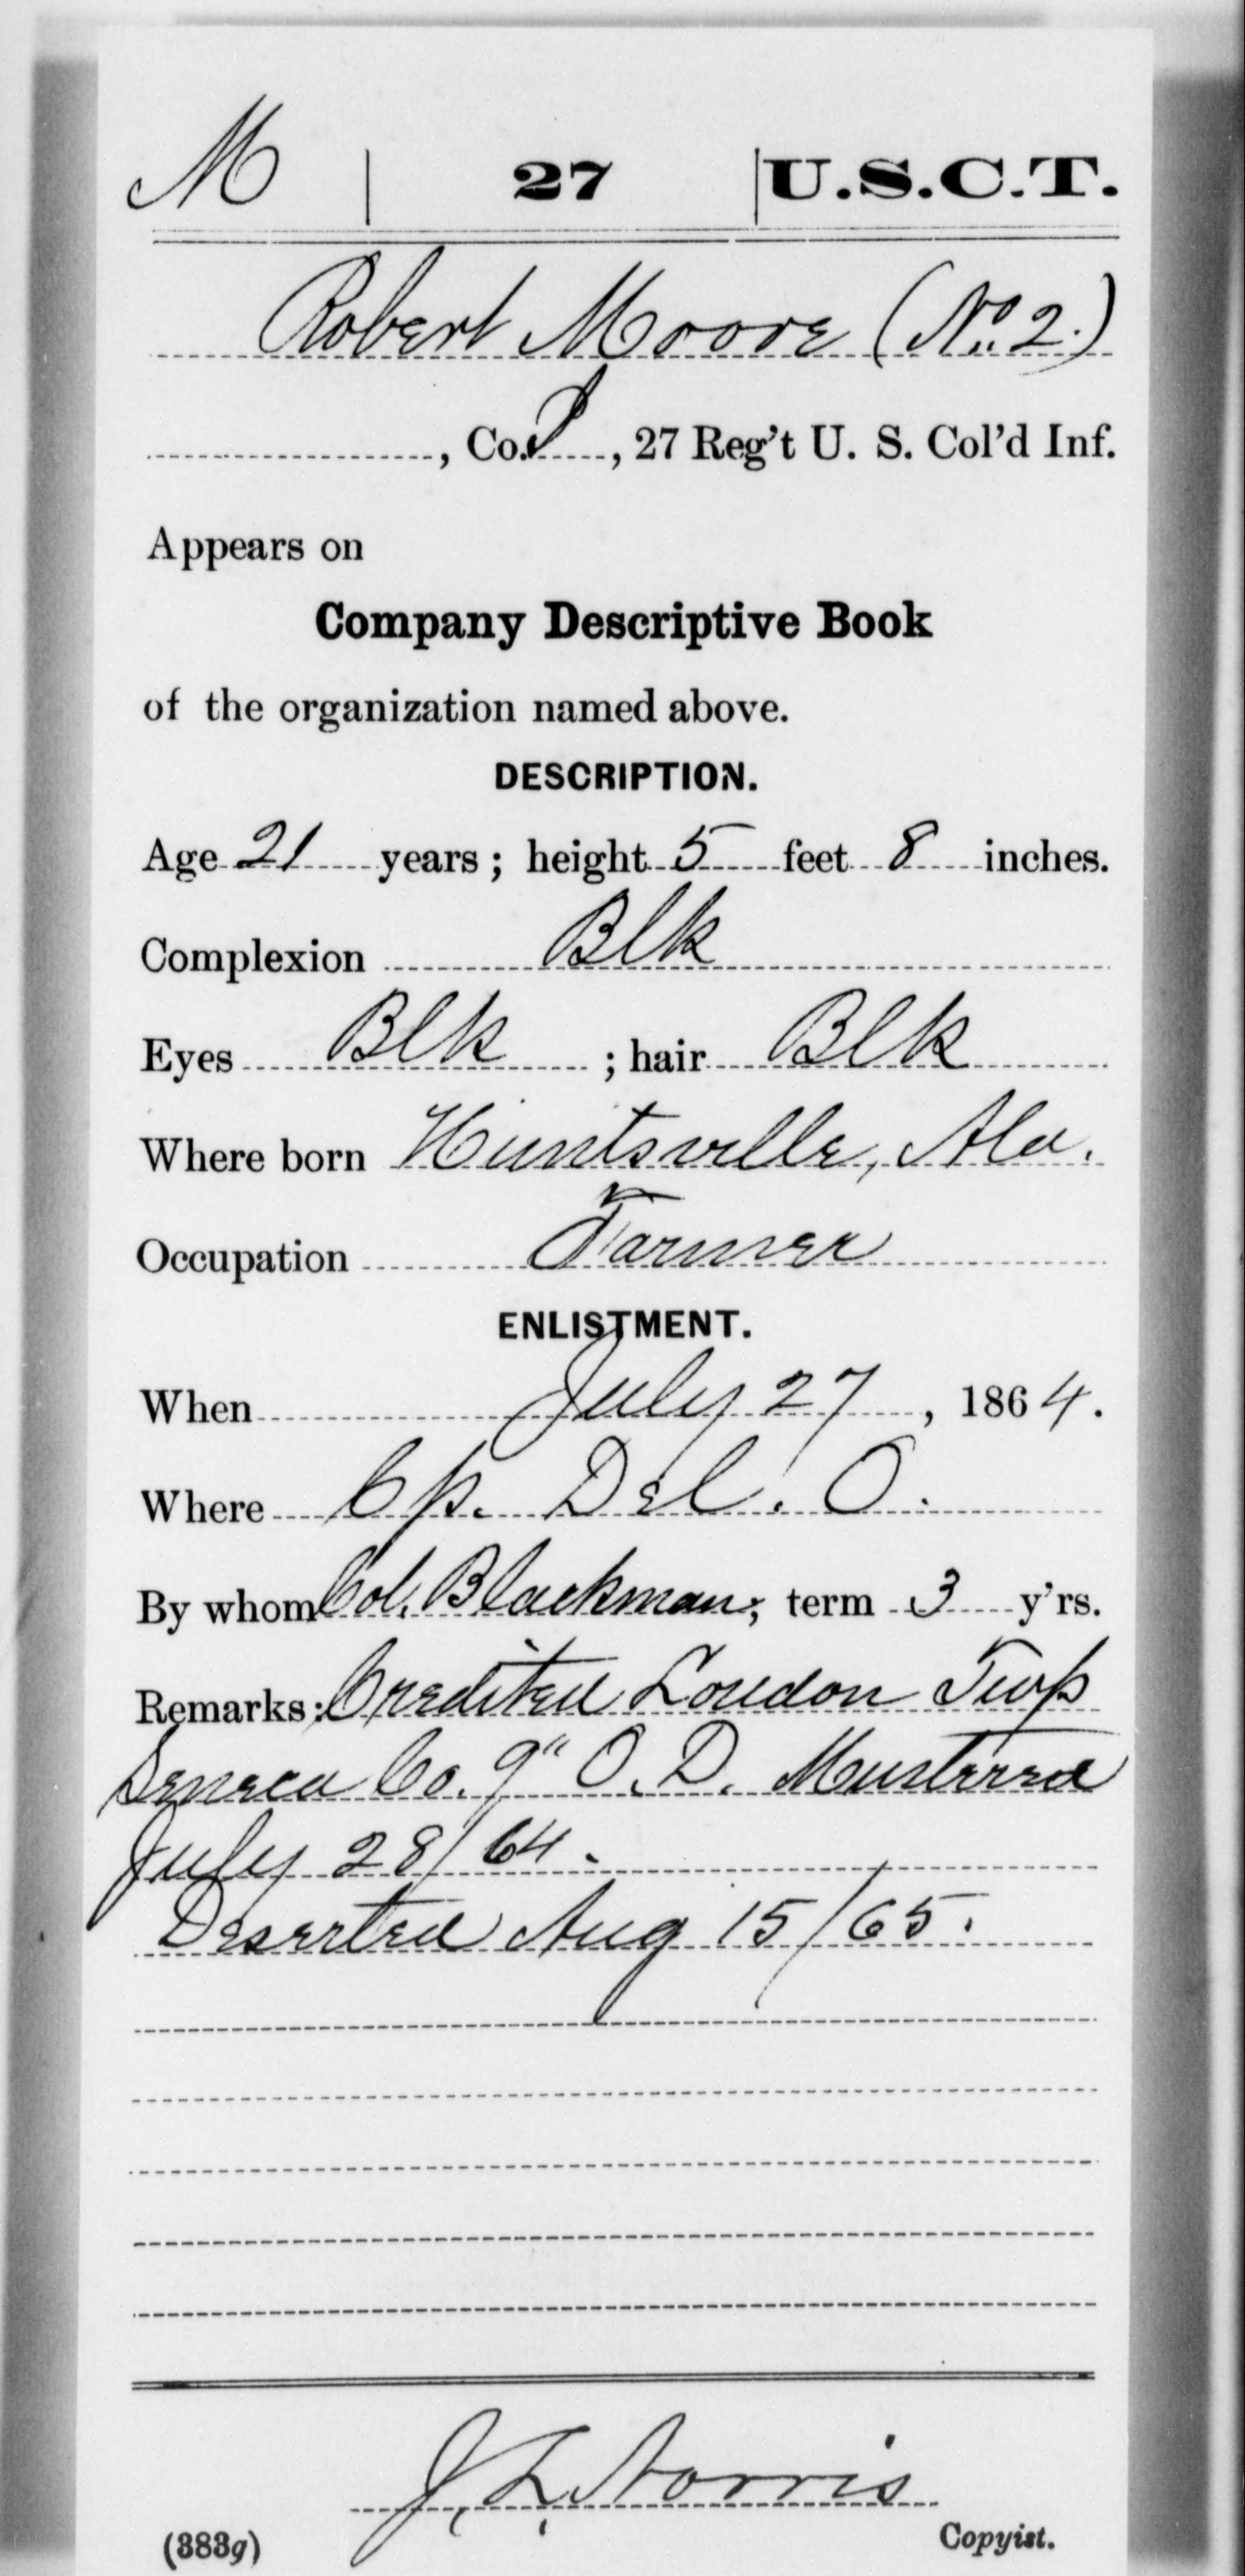 M | 27 | U.S.C.T.
Robert Moore (No. 2.)
, Co. I, 27 Reg't U. S. Col'd Inf.
Appears on
Company Descriptive Book
of the organization named above.
DESCRIPTION.
Age 21 years; height 5 feet 8 inches.
Complexion Blk
Eyes Blk ; hair Blk
Where born Huntsville, Ala.
Occupation Farmer
ENLISTMENT.
When July 27, 1864.
Where Cp. Del. O.
By whom Col. Blackman; term 3 y'rs.
Remarks: Credited Loudon Twp
Seneca Co. 9" O. D. Mustered
July 28/64.
Deserted Aug 15/65.
J. L. Norris
(383g) Copyist.